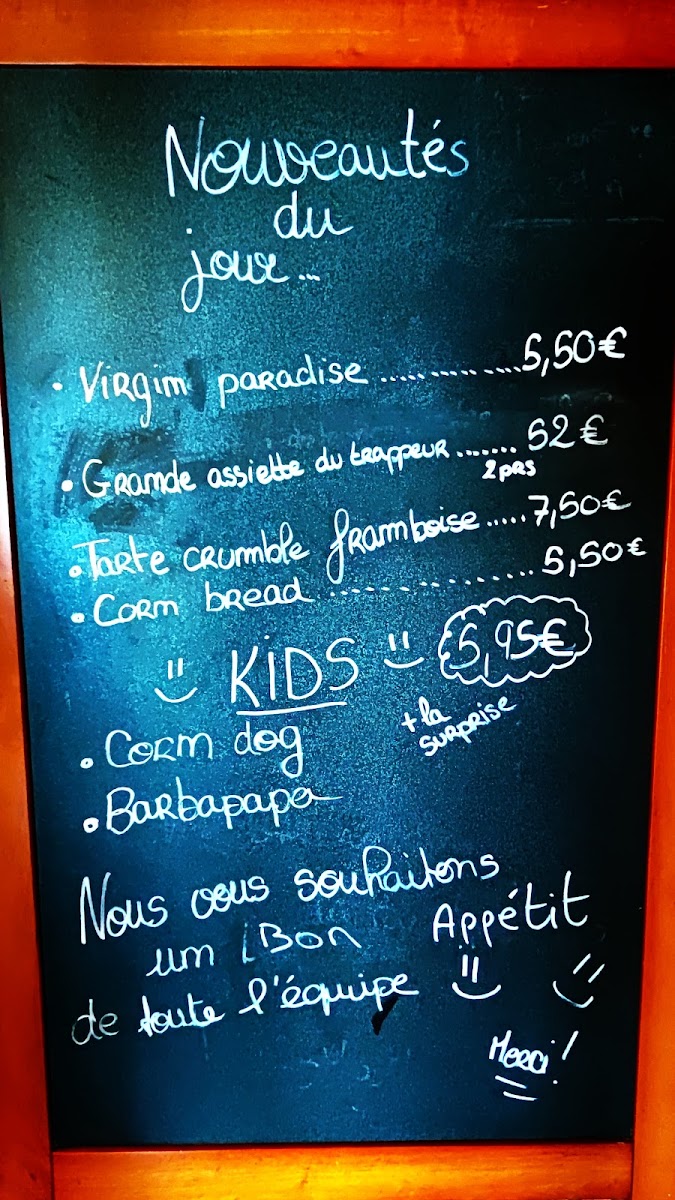 Nouveautés
du
jour...
• Virgin paradise ............. 5,50€
• Grande assiette du trappeur ....... 52€
2 prs
• Tarte crumble framboise ..... 7,50€
• Corn bread .............. 5,50€
KIDS 5,95€
+ la
surprise
• Corn dog
• Barbapapa
Nous vous souhaitons
un Bon Appétit
de toute l'équipe
Merci !